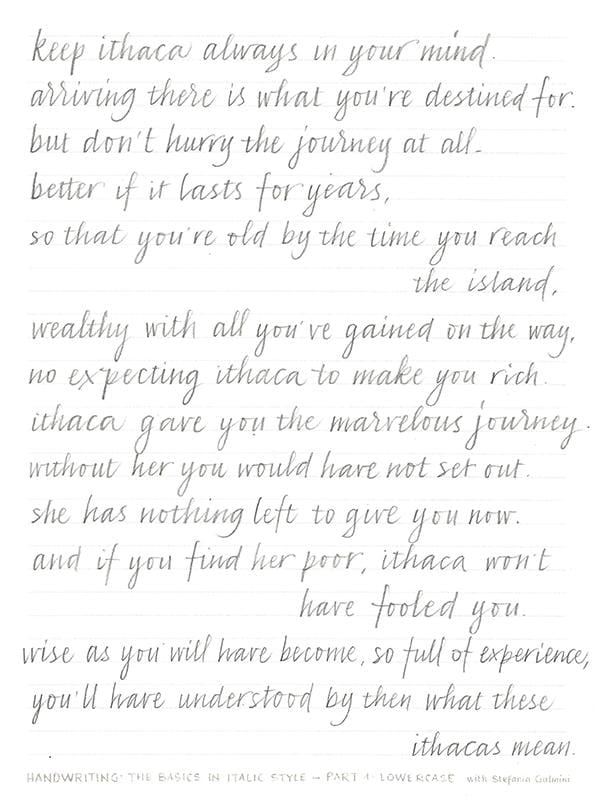 keep ithaca always in your mind.
arriving there is what you're destined for.
but don't hurry the journey at all.
better if it lasts for years,
so that you're old by the time you reach
the island,
wealthy with all you've gained on the way,
no expecting ithaca to make you rich.
ithaca gave you the marvelous journey.
without her you would have not set out.
she has nothing left to give you now.
and if you find her poor, ithaca won't
have fooled you.
wise as you will have become, so full of experience,
you'll have understood by then what these
ithacas mean.
HANDWRITING: THE BASICS IN ITALIC STYLE – PART 1: LOWERCASE with Stefania